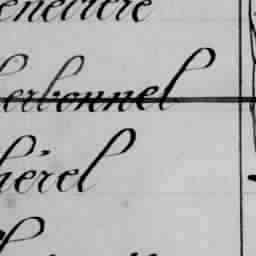 enevière
herbonnel
hérel